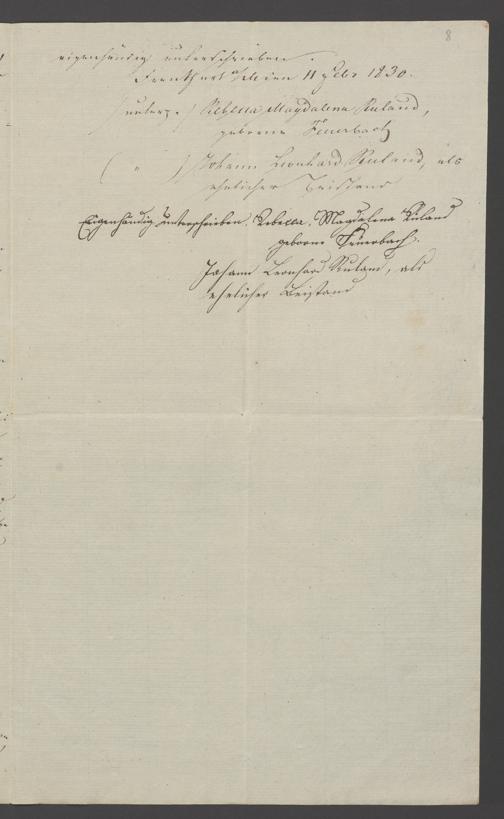 8
eigenhändig unterschrieben.
Frankfurt a/M den 11 Febr 1830.
(unterz.) Rebecca Magdalena Ruland,
geborene Feuerbach
( " ) Johann Leonhard Ruland, als
ehelicher Beistand
Eigenhändig unterschrieben. Rebecca Magdalena Ruland
geborne Feuerbach.
Johann Leonhard Ruland, als
ehelicher Beistand